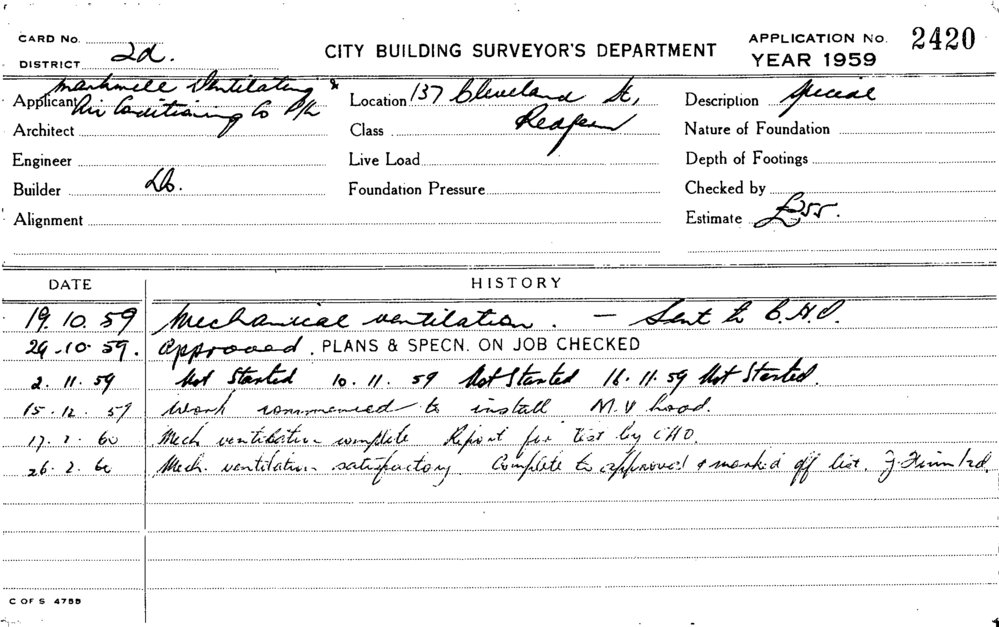 CARD No.
DISTRICT 2d.
CITY BUILDING SURVEYOR'S DEPARTMENT
APPLICATION No. 2420
YEAR 1959
Applicant Ventilating &
Air Conditioning Co P/L
Location 137 Cleveland St,
Redfern
Description Special
Architect
Class
Nature of Foundation
Engineer
Live Load
Depth of Footings
Builder Do.
Foundation Pressure
Checked by
Alignment
Estimate £55.
DATE HISTORY
19.10.59 Mechanical ventilation. — Sent to C.H.O.
29.10.59. Approved. PLANS & SPECN. ON JOB CHECKED
2.11.59 Not Started 10.11.59 Not Started 16.11.59 Not Started.
15.12.59 Work commenced to install M.V hood.
17.2.60 Mech ventilation complete Report for test by CHO.
26.2.60 Mech. ventilation satisfactory Complete to approval & marked off list.
C OF S 4755